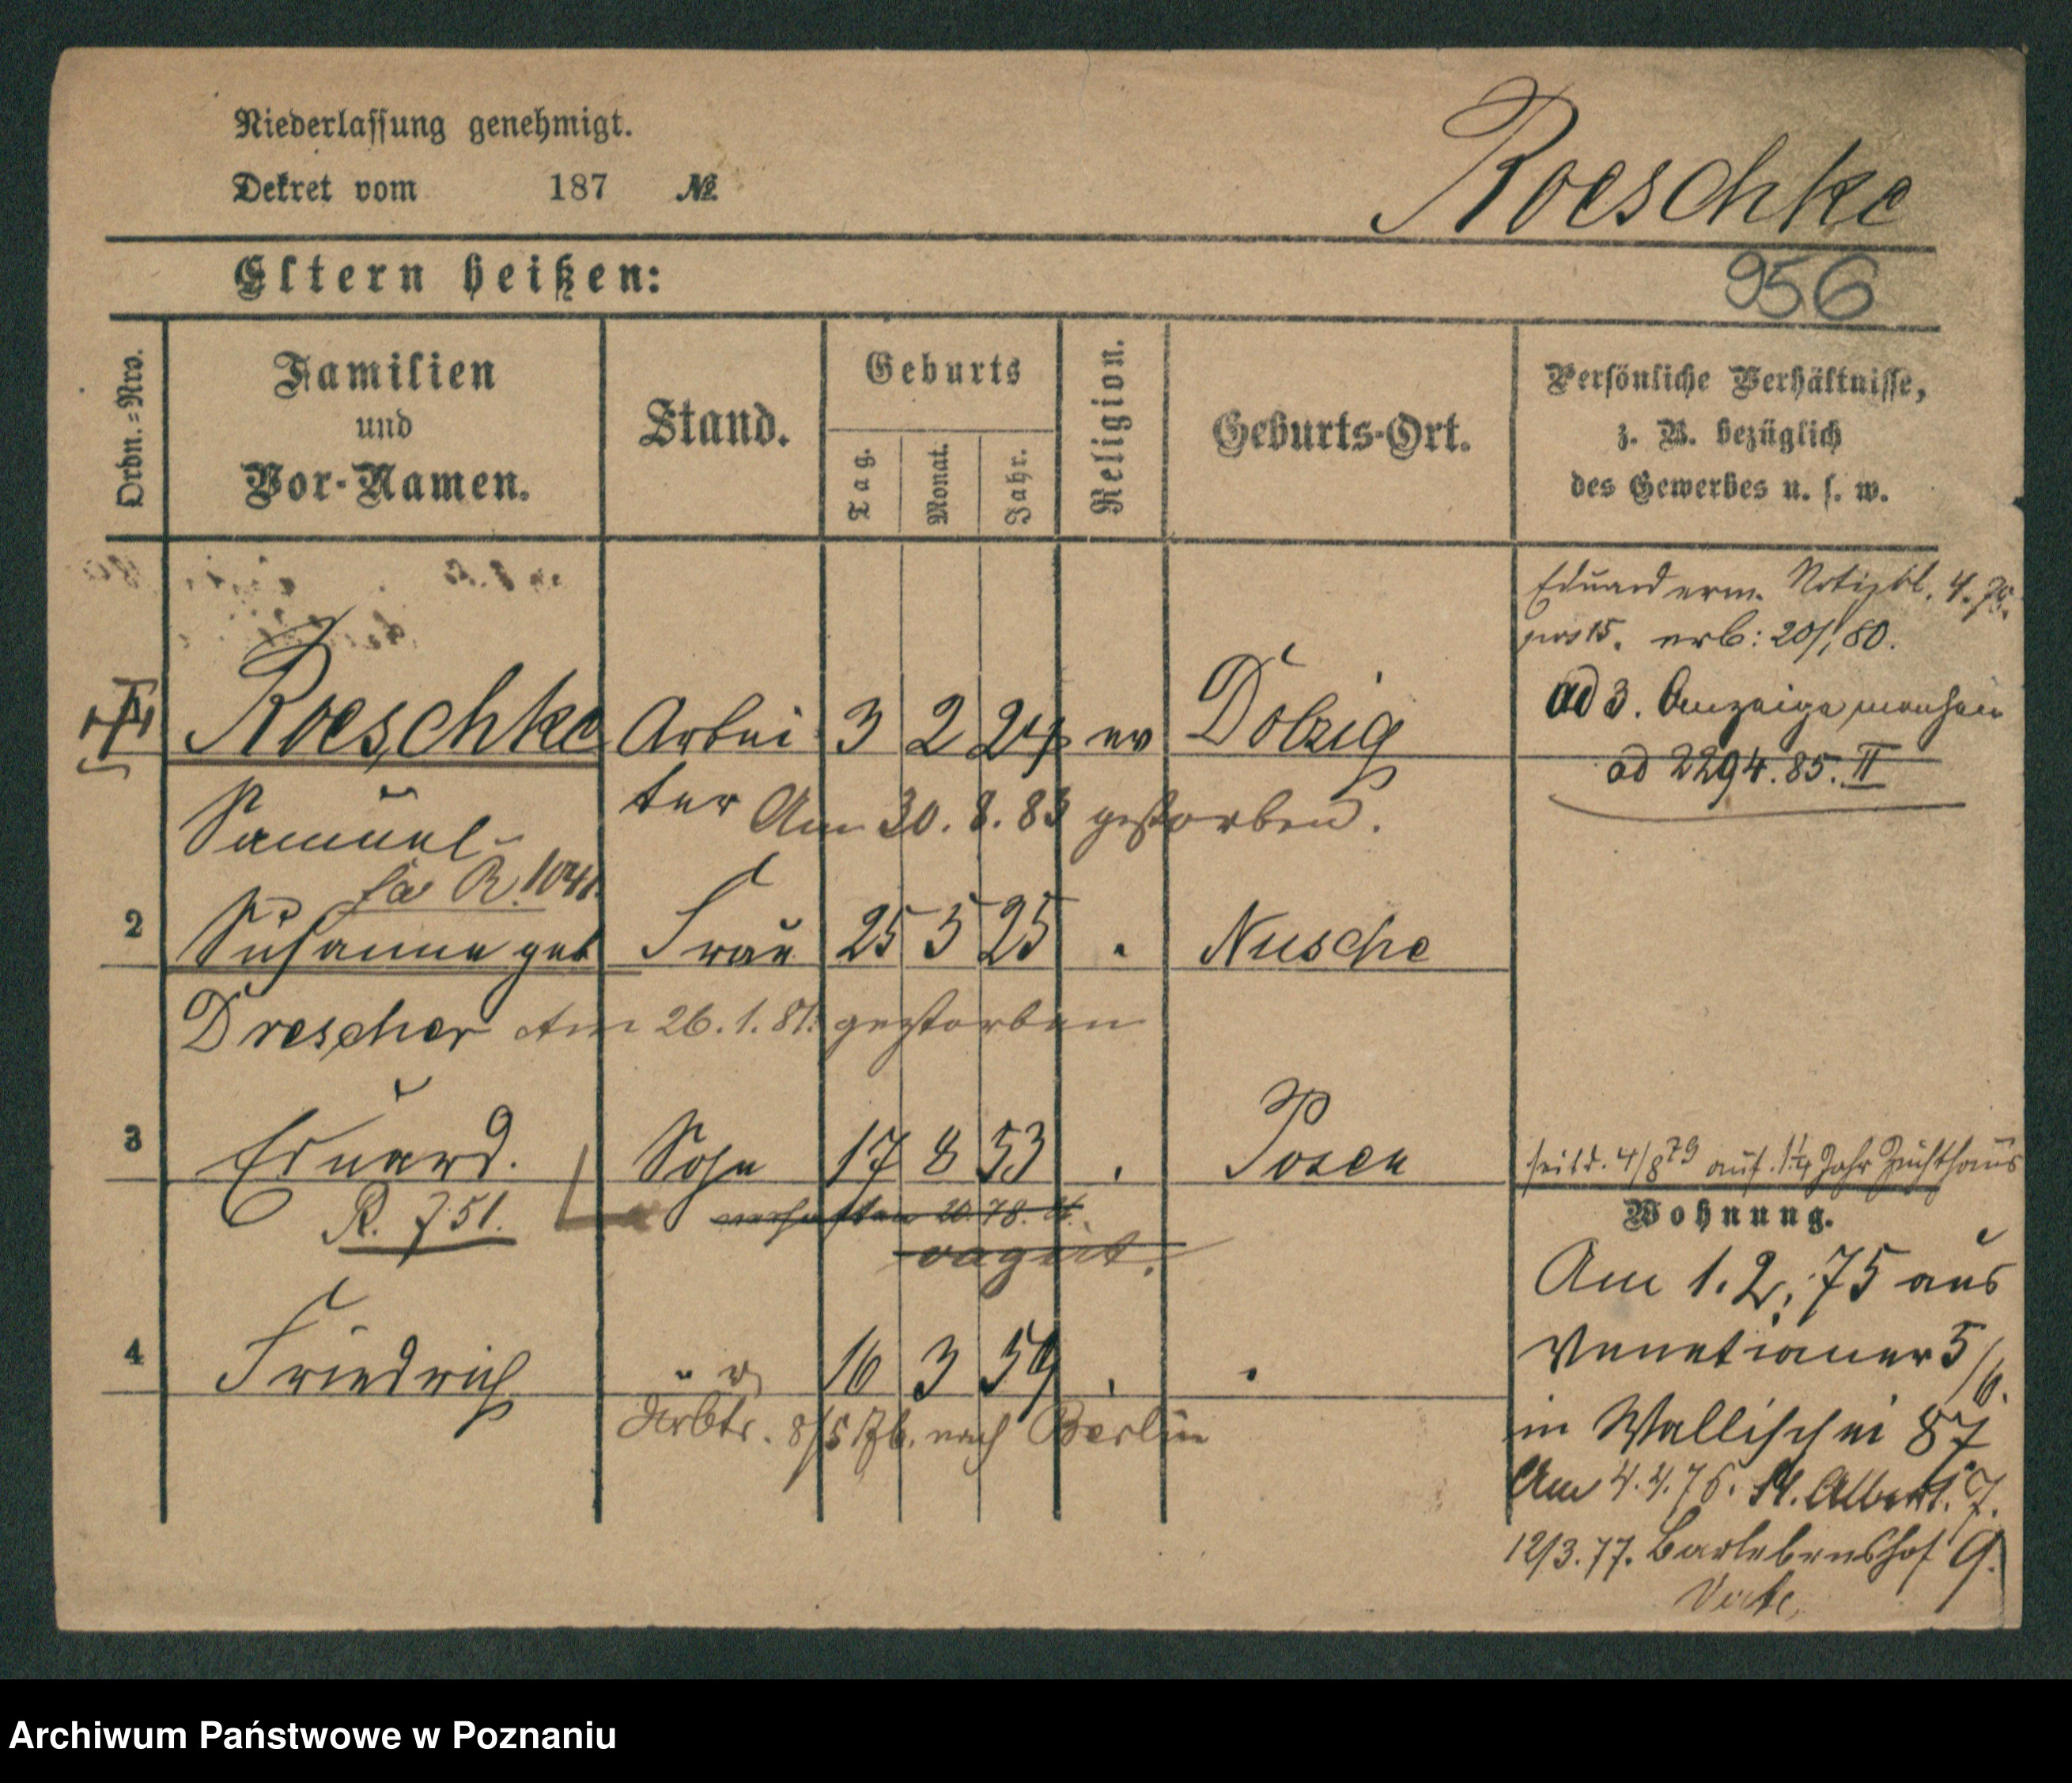 Niederlassung genehmigt.
Dekret vom 187 №
Roeschke
956
Eltern heißen:
Ordn.=Nro.
Familien
und
Vor-Namen.
Stand.
Geburts
Tag.
Monat.
Jahr.
Religion.
Geburts-Ort.
Persönliche Verhältnisse,
z. B. bezüglich
des Gewerbes u. s. w.
Eduard erm. Notizbl. 4.79.
pos 15. erb: 20/1 80.
1 Roeschke Arbei 3 2 24 ev Dolzig
ad 3. Anzeige
ad 2294.85.II
Samuel ter Am 30. 8. 83 gestorben.
R. 1041.
2 Susanne geb Frau 25 5 25 . Nusche
Drescher Am 26.1.81. gestorben
3 Eduard. Sohn 17 8 53 . Posen
seit d. 4/8 79 auf 1 1/4 Jahr Zuchthaus
R. 751. verhaftet 20.78.
vagirt.
Wohnung.
Am 1.2.75 aus
4 Friedrich " 16 3 59 . .
Venetianer 5/6.
Arbtr. 8/5 76. nach Berlin
in Wallischei 87
Am 4.4.76. St. Adalbert. 7.
12/3.77. Bartebenshof 9.
Verte.
Archiwum Państwowe w Poznaniu